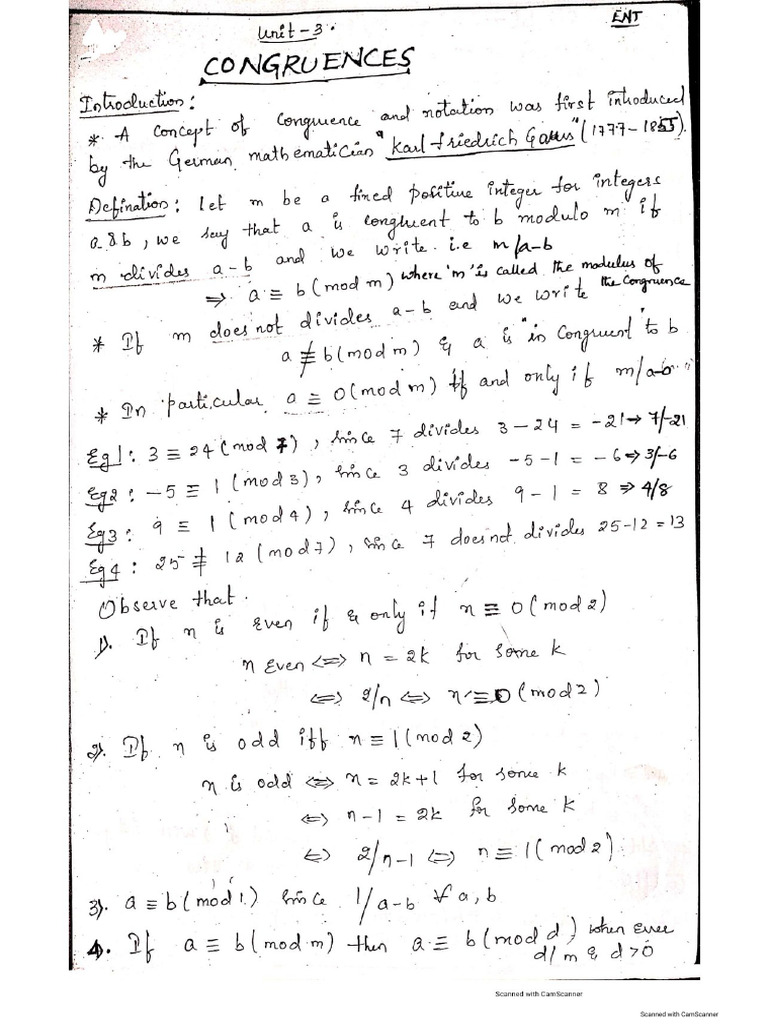 ENT
Unit-3.
CONGRUENCES
Introduction:
* A concept of congruence and notation was first introduced
by the German mathematician "Karl Friedrich Gauss" (1777-1855).
Defination: Let m be a fixed positive integer for integers
a & b, we say that a is congruent to b modulo m if
m divides a-b and we write. i.e m/a-b
⇒ a ≡ b (mod m) where 'm' is called the modulus of
the congruence
* If m does not divides a-b and we write
a ≢ b (mod m) & a is "in congruent" to b
* In particular a ≡ 0 (mod m) if and only if m/a-0
Eg1: 3 ≡ 24 (mod 7), since 7 divides 3-24 = -21 → 7/-21
Eg2: -5 ≡ 1 (mod 3), since 3 divides -5-1 = -6 ⇒ 3/-6
Eg3: 9 ≡ 1 (mod 4), since 4 divides 9-1 = 8 ⇒ 4/8
Eg4: 25 ≢ 12 (mod 7), since 7 doesnot divides 25-12 = 13
Observe that.
1). If n is even if & only if n ≡ 0 (mod 2)
n even ⇔ n = 2k for some k
⇔ 2/n ⇔ n ≡ 0 (mod 2)
2). If n is odd iff n ≡ 1 (mod 2)
n is odd ⇔ n = 2k+1 for some k
⇔ n-1 = 2k for some k
⇔ 2/n-1 ⇔ n ≡ 1 (mod 2).
3). a ≡ b (mod 1.) since 1/a-b ∀ a, b
4. If a ≡ b (mod m) then a ≡ b (mod d) when ever
d/m & d > 0
Scanned with CamScanner
Scanned with CamScanner